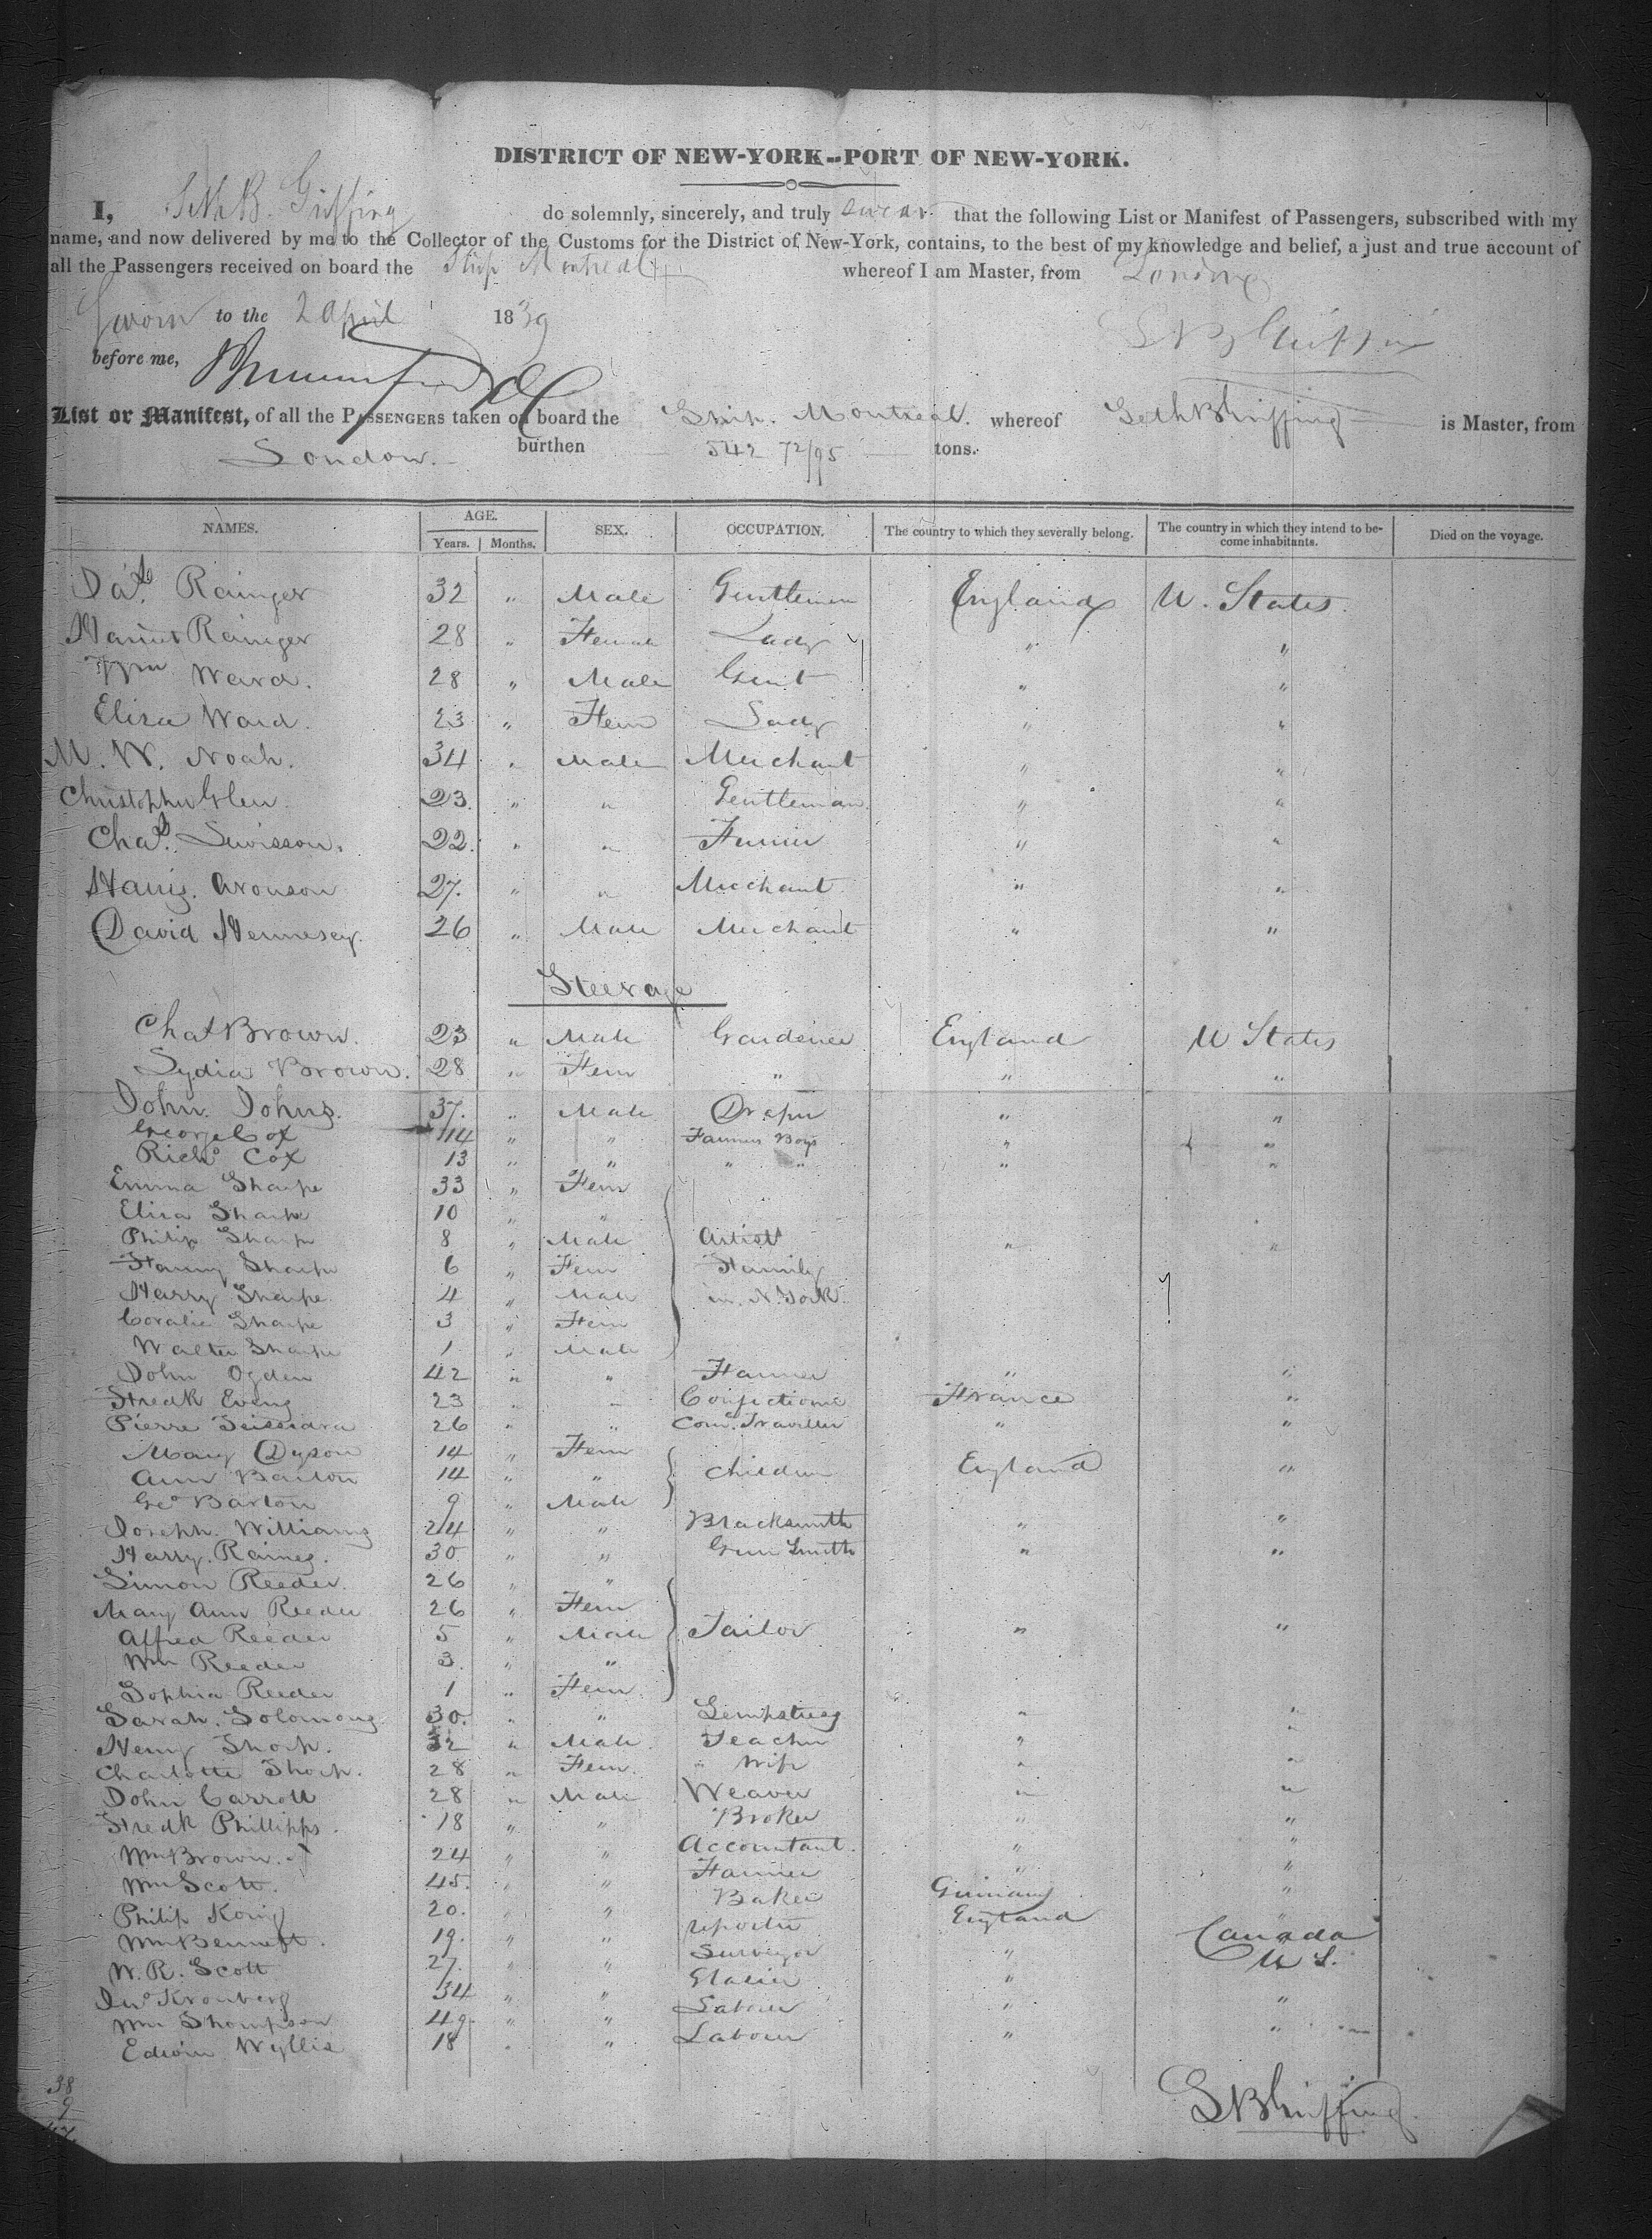 DISTRICT OF NEW-YORK--PORT OF NEW-YORK.
I, Seth B. Griffing do solemnly, sincerely, and truly swear that the following List or Manifest of Passengers, subscribed with my
name, and now delivered by me to the Collector of the Customs for the District of New-York, contains, to the best of my knowledge and belief, a just and true account of
all the Passengers received on board the Ship Montreal whereof I am Master, from London
Sworn to the 2 April 1839
S B Griffing
before me,
List or Manifest, of all the PASSENGERS taken on board the Ship. Montreal. whereof Seth B Griffing is Master, from
London. burthen 542 72/95 tons.
NAMES. AGE. Years. Months. SEX. OCCUPATION. The country to which they severally belong. The country in which they intend to become inhabitants. Died on the voyage.
Rainger 32 " Male Gentleman England U. States.
Rainger 28 " Female Lady " "
Wm Ward. 28 " Male Gent " "
Eliza Ward. 23 " Fem Lady " "
M. W. Noah. 34 " Male Merchant " "
Christopher Glen. 23. " " Gentleman. " "
Chas. Lewisson. 22. " " " "
Harris. Aronson 27. " " Merchant. " "
David Hennesey. 26 " Male Merchant " "
Steerage
Chas Brown. 23 " Male Gardener England U States
Lydia Brown. 28 " Fem " " "
John. Johns. 37. " Male Draper " "
George Cox 14 " " Farmers Boys " "
Richd Cox 13 " " " " " "
Emma Sharpe 33 " Fem
Eliza Sharpe 10 " "
Philip Sharpe 8 " Male Artist " "
Fanny Sharpe 6 " Fem Family
Harry Sharpe. 4 " Male in N. York.
Coralie Sharpe 3 " Fem
Walter Sharpe 1 " Male
John Ogden 42 " " Farmer " "
Fredk Evens 23 " " Confectioner France "
Pierre 26 " " Coml Traveller " "
Mary Dyson 14 " Fem
Ann Barton 14 " " Children England "
Geo Barton 9 " Male
Joseph. Williams 24 " " Blacksmith " "
Harry. Raines. 30. " " Gun Smith " "
Simon Reeder. 26 " "
Mary Ann Reeder 26 " Fem
Alfred Reeder 5 " Male Tailor " "
Wm Reeder 3. " "
Sophia Reeder 1 " Fem
Sarah. Solomons 30. " " Sempstress " "
Henry Thorp. 32 " Male. Teacher " "
Charlotte Thorp. 28 " Fem. " Wife " "
John Carroll 28 " Male Weaver " "
Fredk Phillipps. 18 " " Broker " "
Wm Brown. 24 " " Accountant. " "
Wm Scott. 45. " " Farmer " "
Philip Konig 20. " " Baker Germany "
Wm Bennett. 19. " " reporter England Canada
W. R. Scott 27. " " Surveyor " U S.
Jno Kronberg 34 " " Glazier " "
Wm Thompson 49. " " Labour " "
Edwin Wyllis 18 " " Labour " "
38
9
47
S B Griffing.